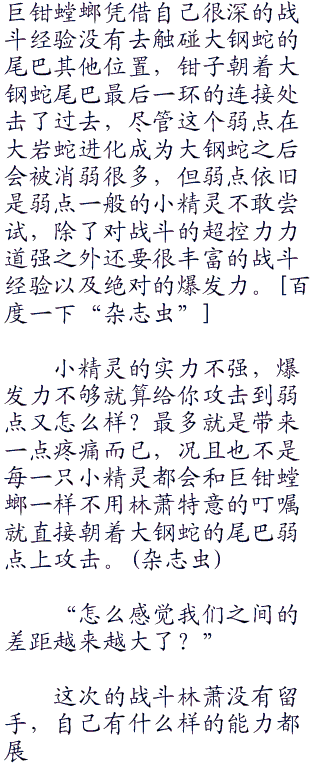 巨钳螳螂凭借自己很深的战
斗经验没有去触碰大钢蛇的
尾巴其他位置，钳子朝着大
钢蛇尾巴最后一环的连接处
击了过去，尽管这个弱点在
大岩蛇进化成为大钢蛇之后
会被消弱很多，但弱点依旧
是弱点一般的小精灵不敢尝
试，除了对战斗的超控力力
道强之外还要很丰富的战斗
经验以及绝对的爆发力。[百
度一下“杂志虫”]
小精灵的实力不强，爆
发力不够就算给你攻击到弱
点又怎么样？最多就是带来
一点疼痛而已，况且也不是
每一只小精灵都会和巨钳螳
螂一样不用林萧特意的叮嘱
就直接朝着大钢蛇的尾巴弱
点上攻击。(杂志虫)
“怎么感觉我们之间的
差距越来越大了？”
这次的战斗林萧没有留
手，自己有什么样的能力都
展